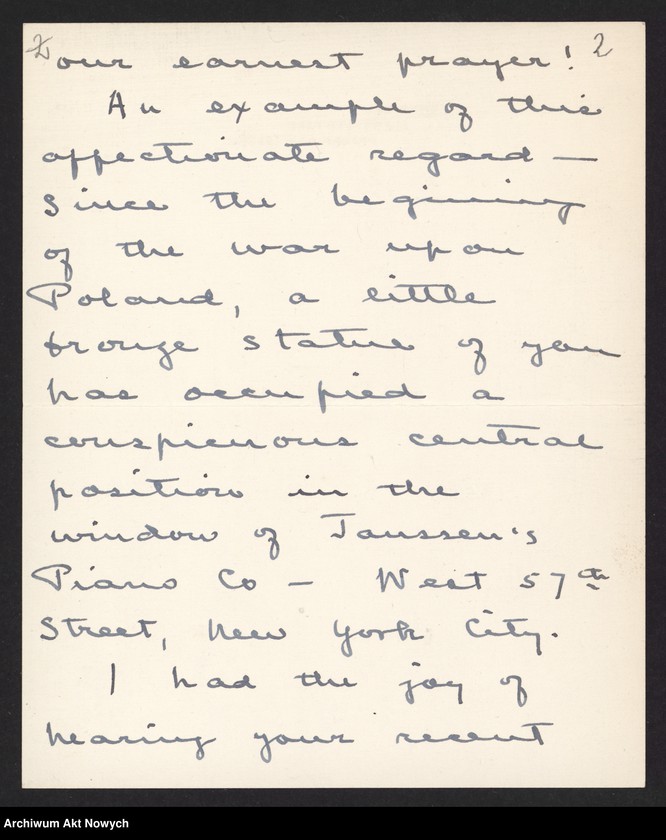 2 our earnest prayer! 2
An example of this
affectionate regard —
since the begining
of the war upon
Poland, a little
bronze statue of you
has occupied a
conspicuous central
position in the
window of Janssen's
Piano Co — West 57th
Street, New York City.
I had the joy of
hearing your recent
Archiwum Akt Nowych